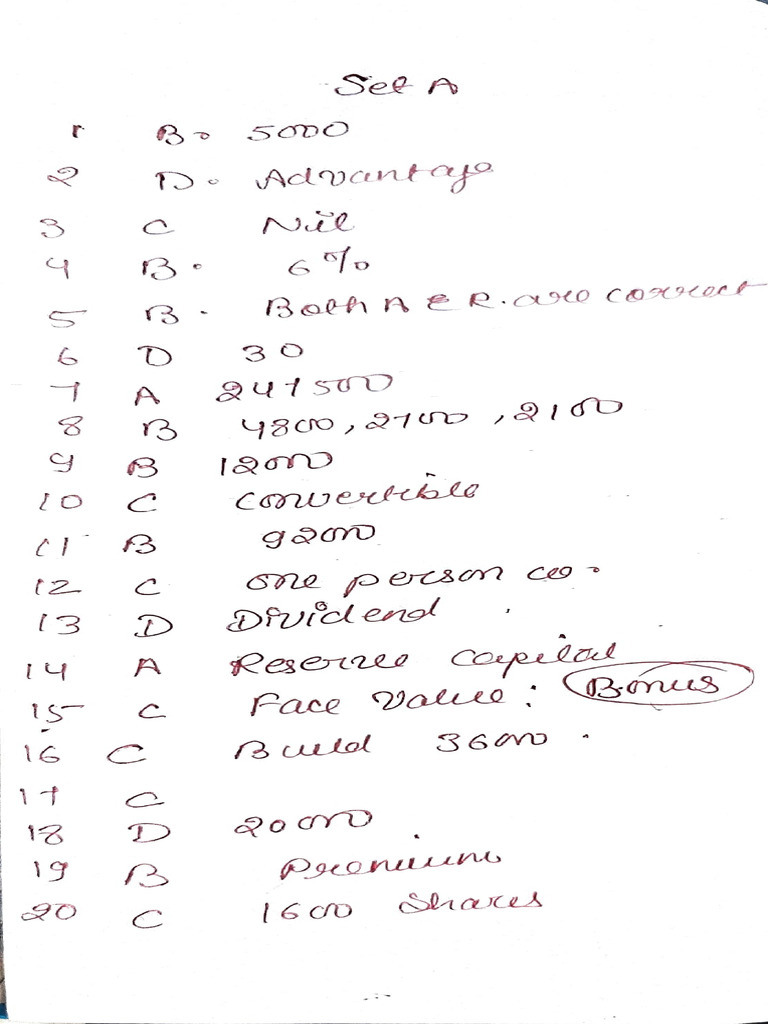 Set A
1 B. 5000
2 D. Advantage
3 C Nil
4 B. 6%
5 B. Both A & R. are correct
6 D 30
7 A 247500
8 B 4800, 2700, 2100
9 B 12000
10 C Convertible
11 B 92000
12 C One person co.
13 D Dividend
14 A Reserve capital
15 C Face Value: Bonus
16 C Build 36000.
17 C
18 D 20000
19 B Premium
20 C 1600 Shares